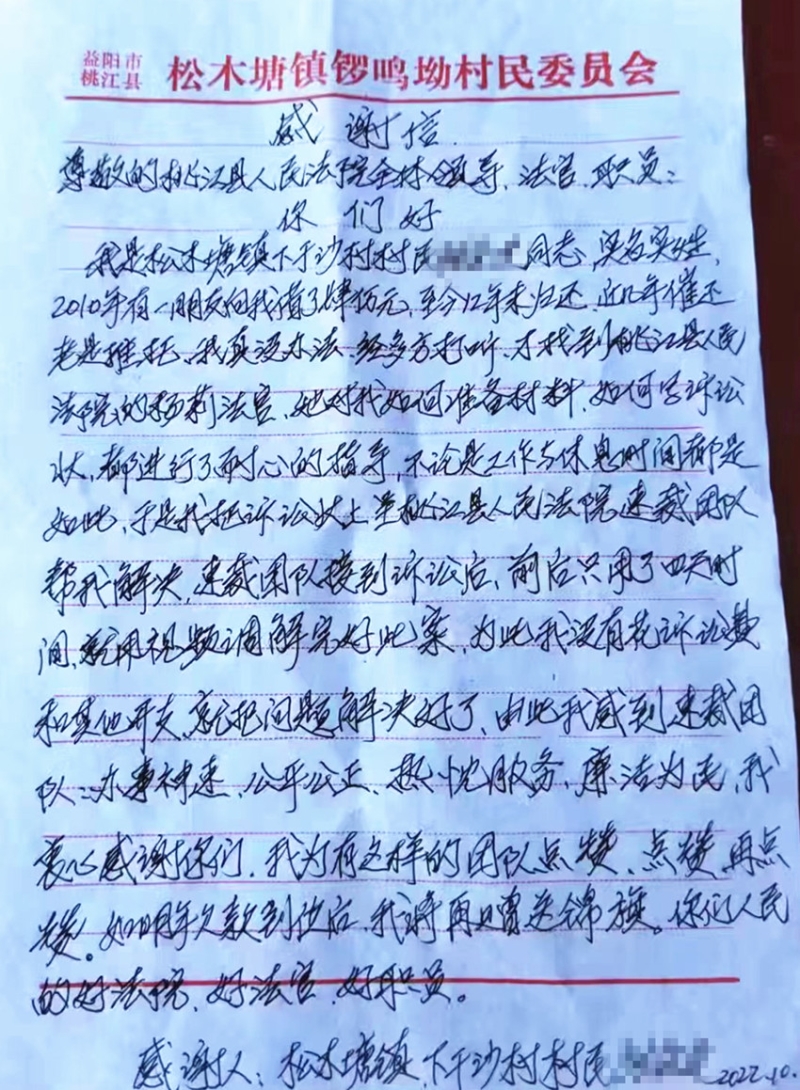 益阳市
桃江县 松木塘镇锣鸣坳村民委员会
感谢信
尊敬的桃江县人民法院全体领导、法官、职员:
你们好
我是松木塘镇下干沙村村民 同志,实名实姓,
2010年有一朋友向我借了肆伍元,至今12年未归还,近几年催还
老是推托,我真没办法,经多方打听,才找到桃江县人民
法院的杨莉法官,她对我如何准备材料,如何写诉讼
状,都进行了耐心的指导,不论是工作与休息时间都是
如此,于是我把诉讼状上呈桃江县人民法院速裁团队
帮我解决,速裁团队接到诉讼后,前后只用了四天时
间,就用视频调解完好此案,为此我没有花诉讼费
和其他开支,就把问题解决好了,由此我感到速裁团
队:办事神速、公平公正、热忱服务、廉洁为民,我
衷心感谢你们,我为有这样的团队点赞、点赞再点
赞。如明年欠款到位后,我将再赠送锦旗。你们人民
的好法院、好法官、好职员。
感谢人:松木塘镇下干沙村村民 2022.10.